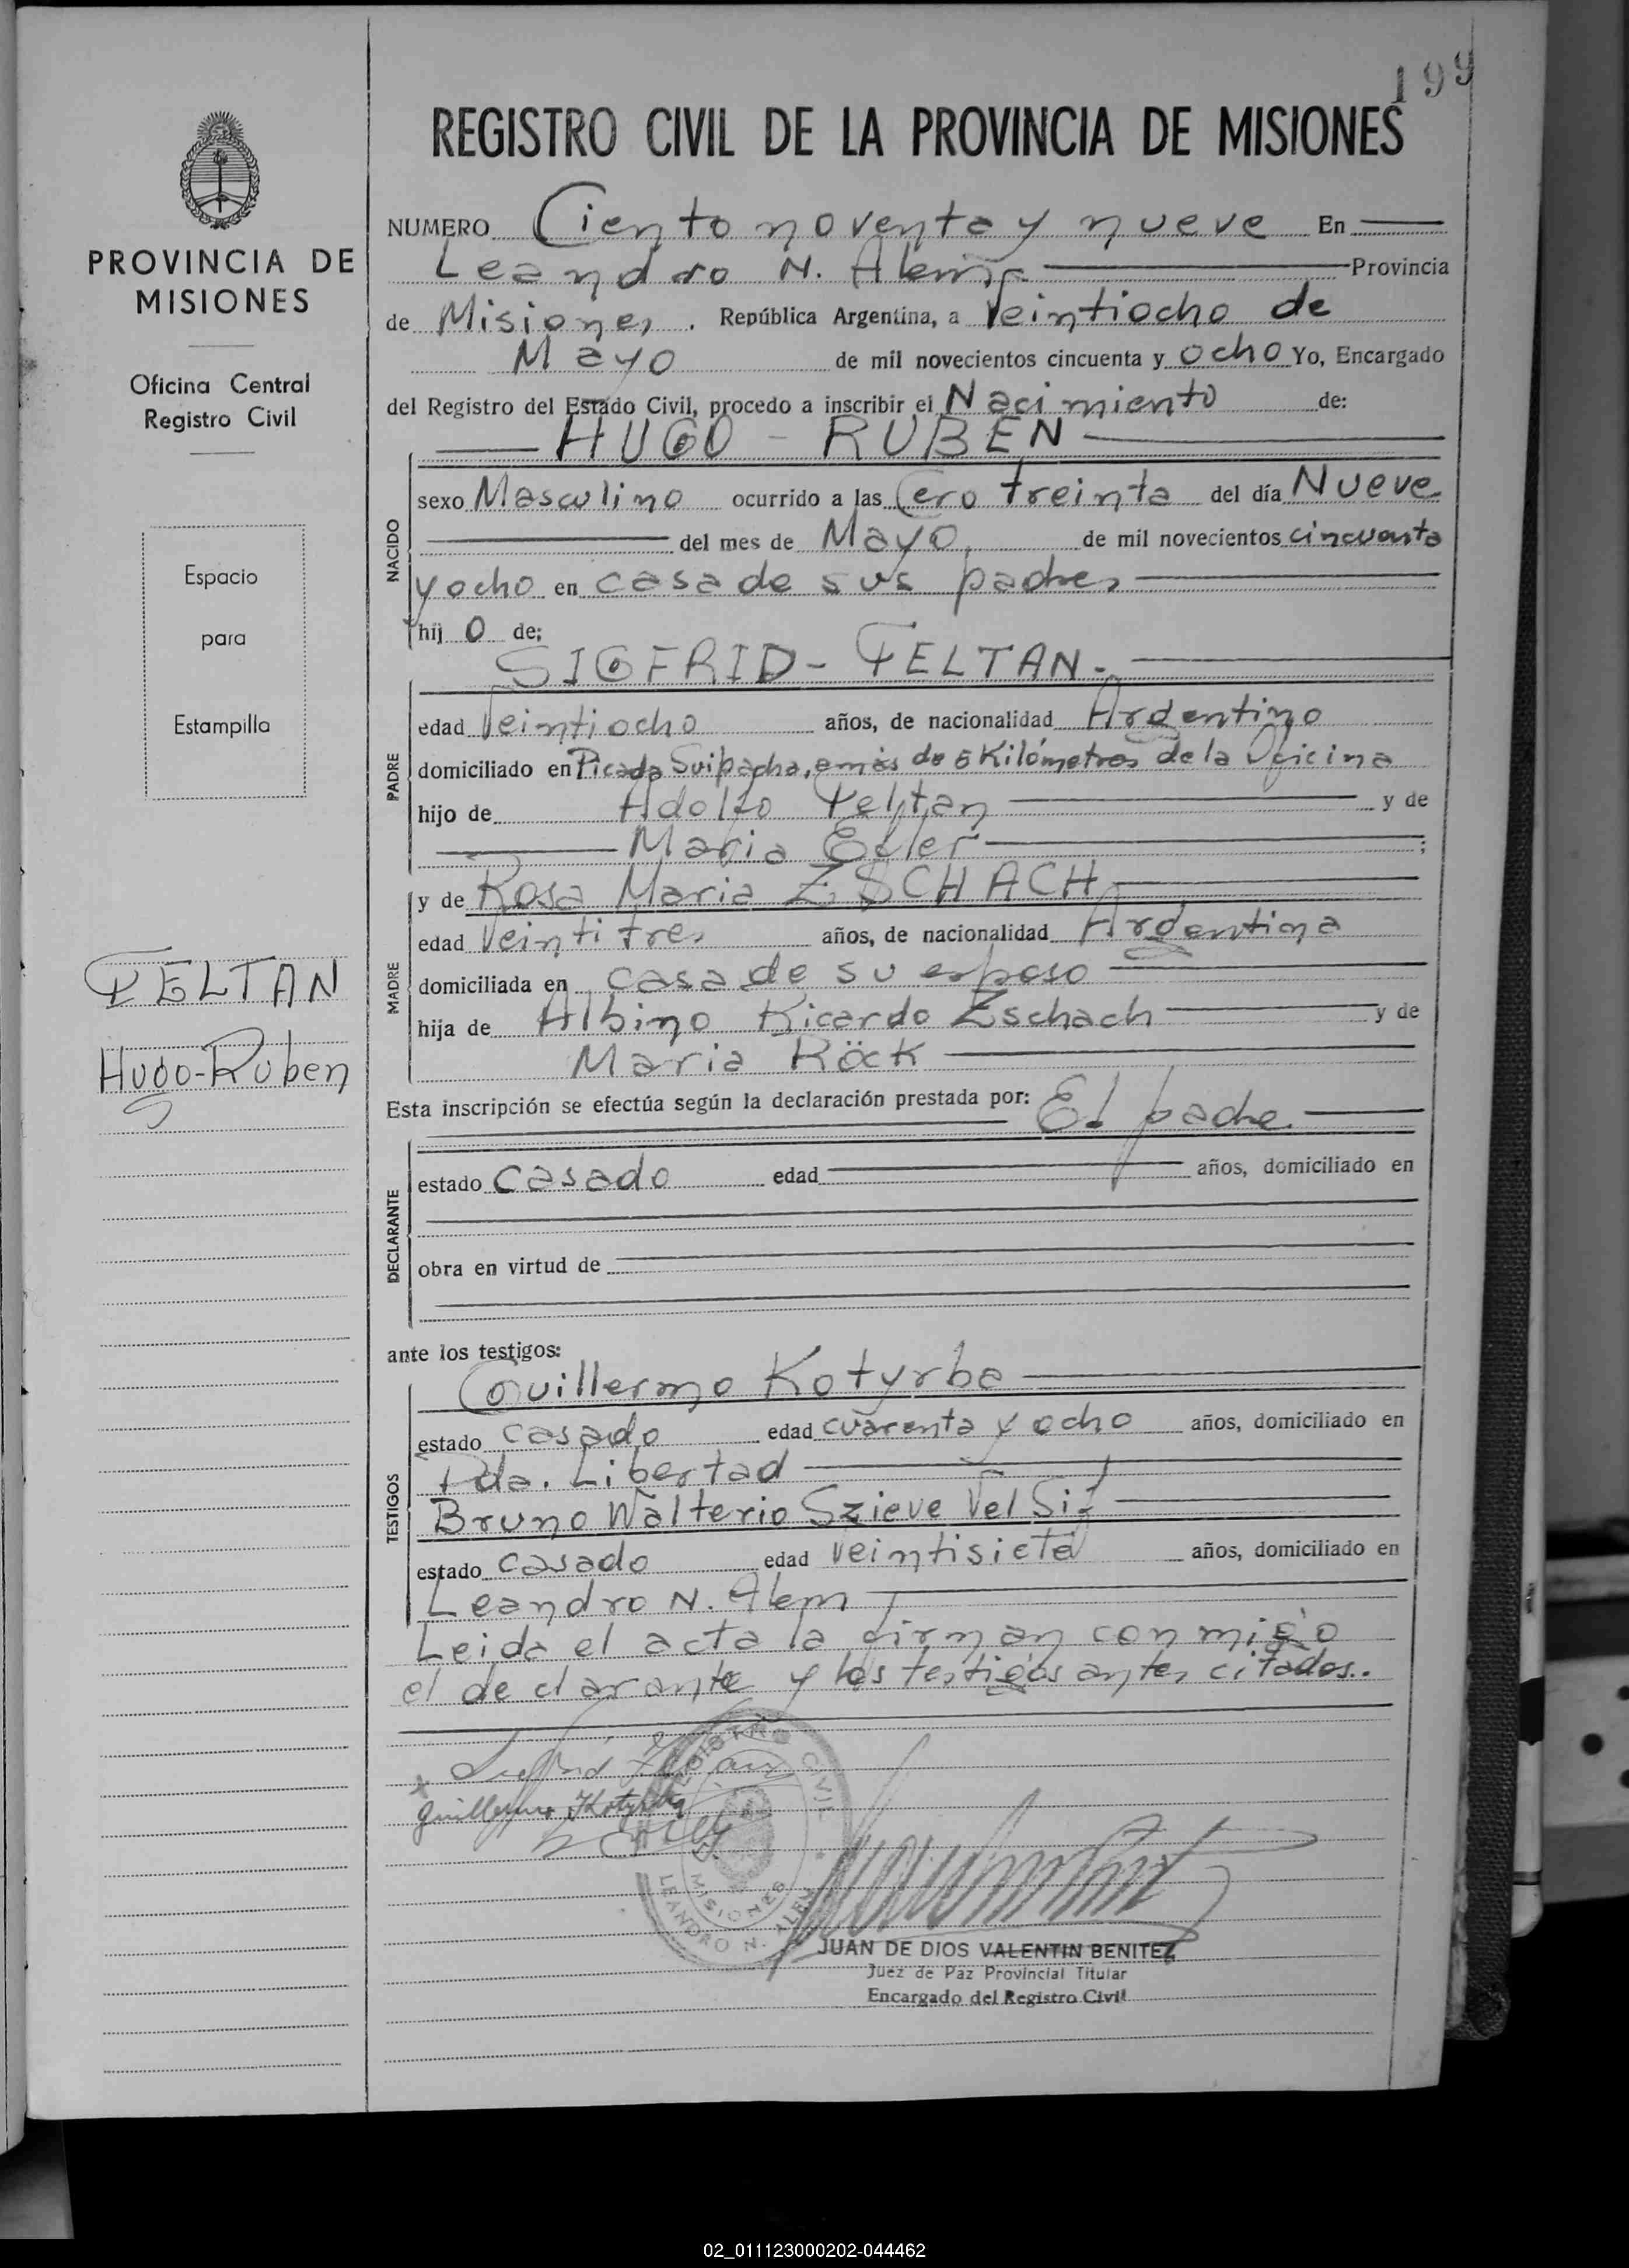 199
REGISTRO CIVIL DE LA PROVINCIA DE MISIONES
PROVINCIA DE
MISIONES
Oficina Central
Registro Civil
Espacio
para
Estampilla
FELTAN
Hugo-Ruben
NUMERO Ciento noventa y nueve En
Leandro N. Alem Provincia
de Misiones. República Argentina, a Veintiocho de
Mayo de mil novecientos cincuenta y ocho Yo, Encargado
del Registro del Estado Civil, procedo a inscribir el Nacimiento de:
HUGO - RUBEN
NACIDO
sexo Masculino ocurrido a las Cero treinta del día Nueve
del mes de Mayo, de mil novecientos cincuenta
y ocho en casa de sus padres
hij o de;
SIGFRID - FELTAN.-
PADRE
edad Veintiocho años, de nacionalidad Argentino
domiciliado en Picada Suipacha, a más de 5 Kilómetros de la Oficina
hijo de Adolfo Feltan y de
Maria Edler ;
MADRE
y de Rosa Maria ZSCHACH
edad Veintitres años, de nacionalidad Argentina
domiciliada en casa de su esposo
hija de Albino Ricardo Zschach y de
Maria Röck
Esta inscripción se efectúa según la declaración prestada por: El padre
DECLARANTE
estado casado edad años, domiciliado en
obra en virtud de
ante los testigos:
TESTIGOS
Guillermo Kotyrba
estado casado edad cuarenta y ocho años, domiciliado en
Pda. Libertad
Bruno Walterio Szieve Vel Sif
estado casado edad veintisiete años, domiciliado en
Leandro N. Alem
Leida el acta la firman conmigo
el declarante y los testigos antes citados.
Guillermo Kotyrba
REGISTRO CIVIL
MISIONES
LEANDRO N. ALEM
JUAN DE DIOS VALENTIN BENITEZ
Juez de Paz Provincial Titular
Encargado del Registro Civil
02_011123000202-044462